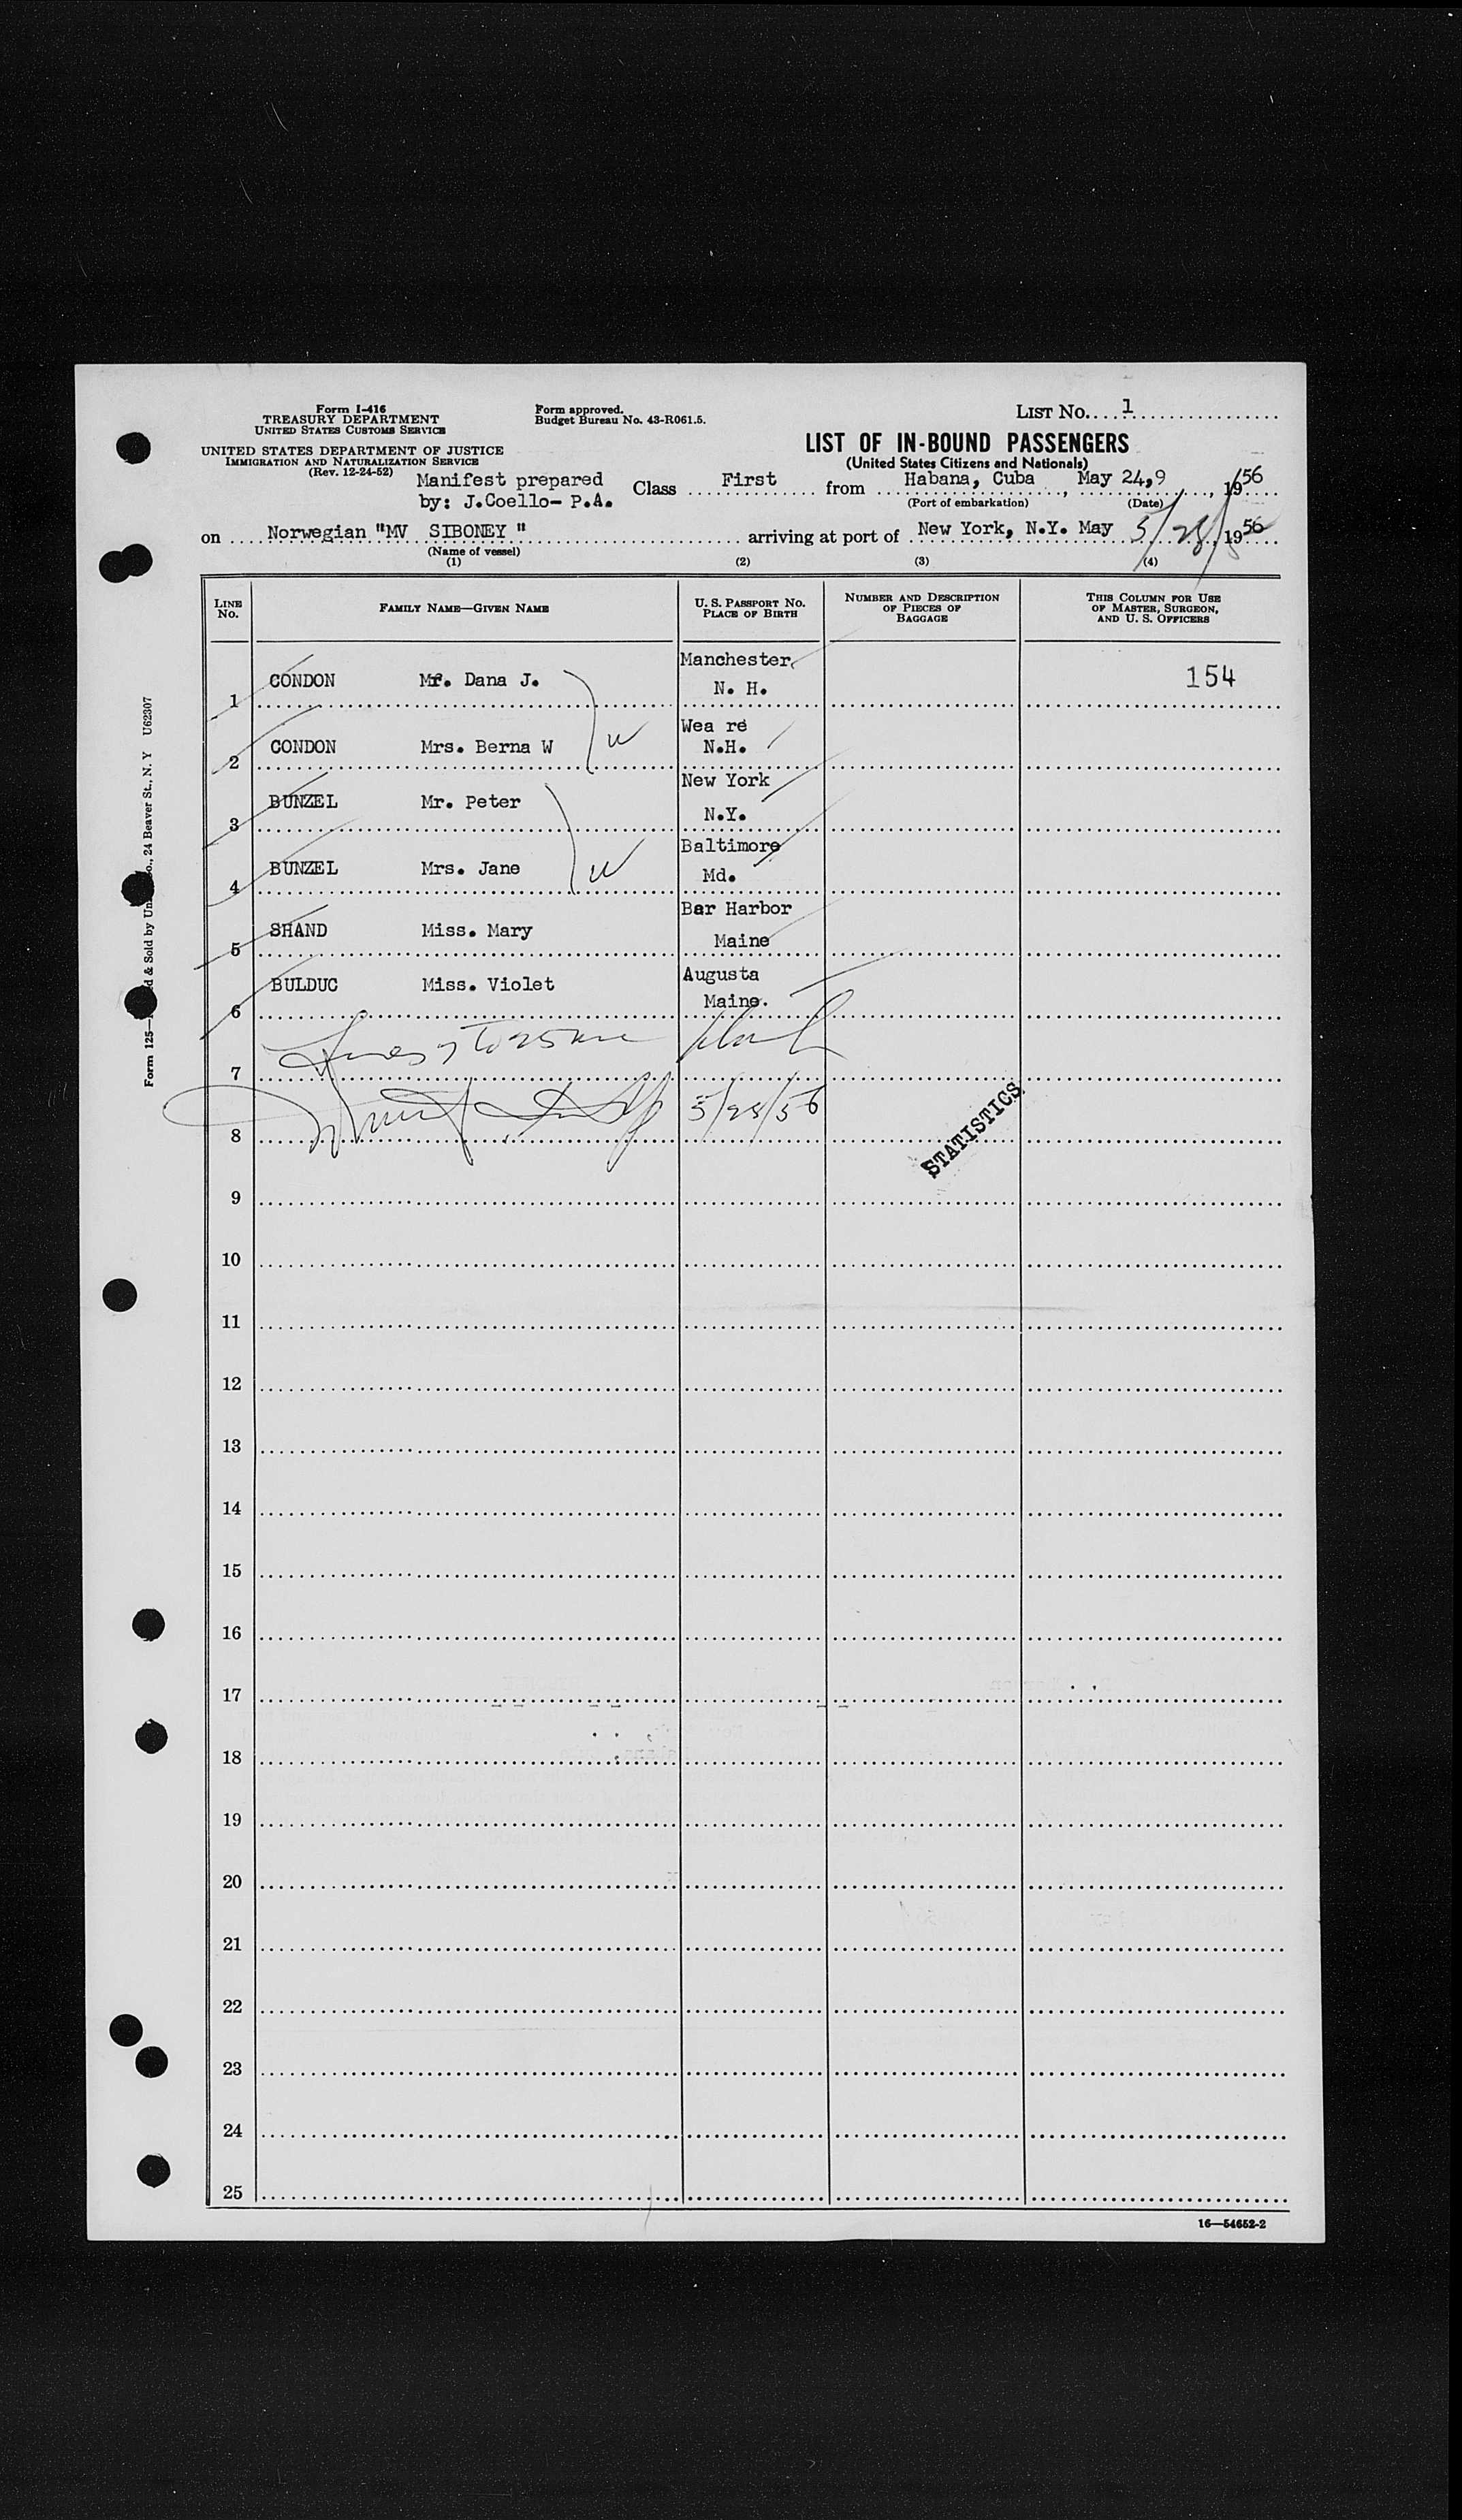 Form I-416
TREASURY DEPARTMENT
UNITED STATES CUSTOMS SERVICE
Form approved.
Budget Bureau No. 43-R061.5.
LIST NO. 1
UNITED STATES DEPARTMENT OF JUSTICE
IMMIGRATION AND NATURALIZATION SERVICE
(Rev. 12-24-52)
LIST OF IN-BOUND PASSENGERS
(United States Citizens and Nationals)
Manifest prepared
by: J.Coello- P.A.
Class First from Habana, Cuba, May 24,9, 1956
(Port of embarkation) (Date)
on Norwegian "MV SIBONEY " arriving at port of New York, N.Y. May 5/28/, 1956
(Name of vessel)
(1) (2) (3) (4)
LINE NO. FAMILY NAME—GIVEN NAME U. S. PASSPORT NO. PLACE OF BIRTH NUMBER AND DESCRIPTION OF PIECES OF BAGGAGE THIS COLUMN FOR USE OF MASTER, SURGEON, AND U. S. OFFICERS
1 CONDON Mr. Dana J. Manchester, N. H. 154
2 CONDON Mrs. Berna W Wea re N.H.
3 BUNZEL Mr. Peter New York N.Y.
4 BUNZEL Mrs. Jane Baltimore Md.
5 SHAND Miss. Mary Bar Harbor Maine
6 BULDUC Miss. Violet Augusta Maine.
7 Lines 7 to 25 Blank
8 5/28/56
STATISTICS
9
10
11
12
13
14
15
16
17
18
19
20
21
22
23
24
25
16—54652-2
Form 125— & Sold by Un o., 24 Beaver St., N. Y U62307